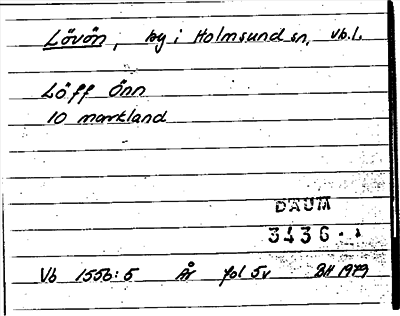 Lövön, by i Holmsund sn, vb.l.
Löff Önn
10 markland
DAUM
3436.
Vb 1556:5 År fol 5v BH 1979